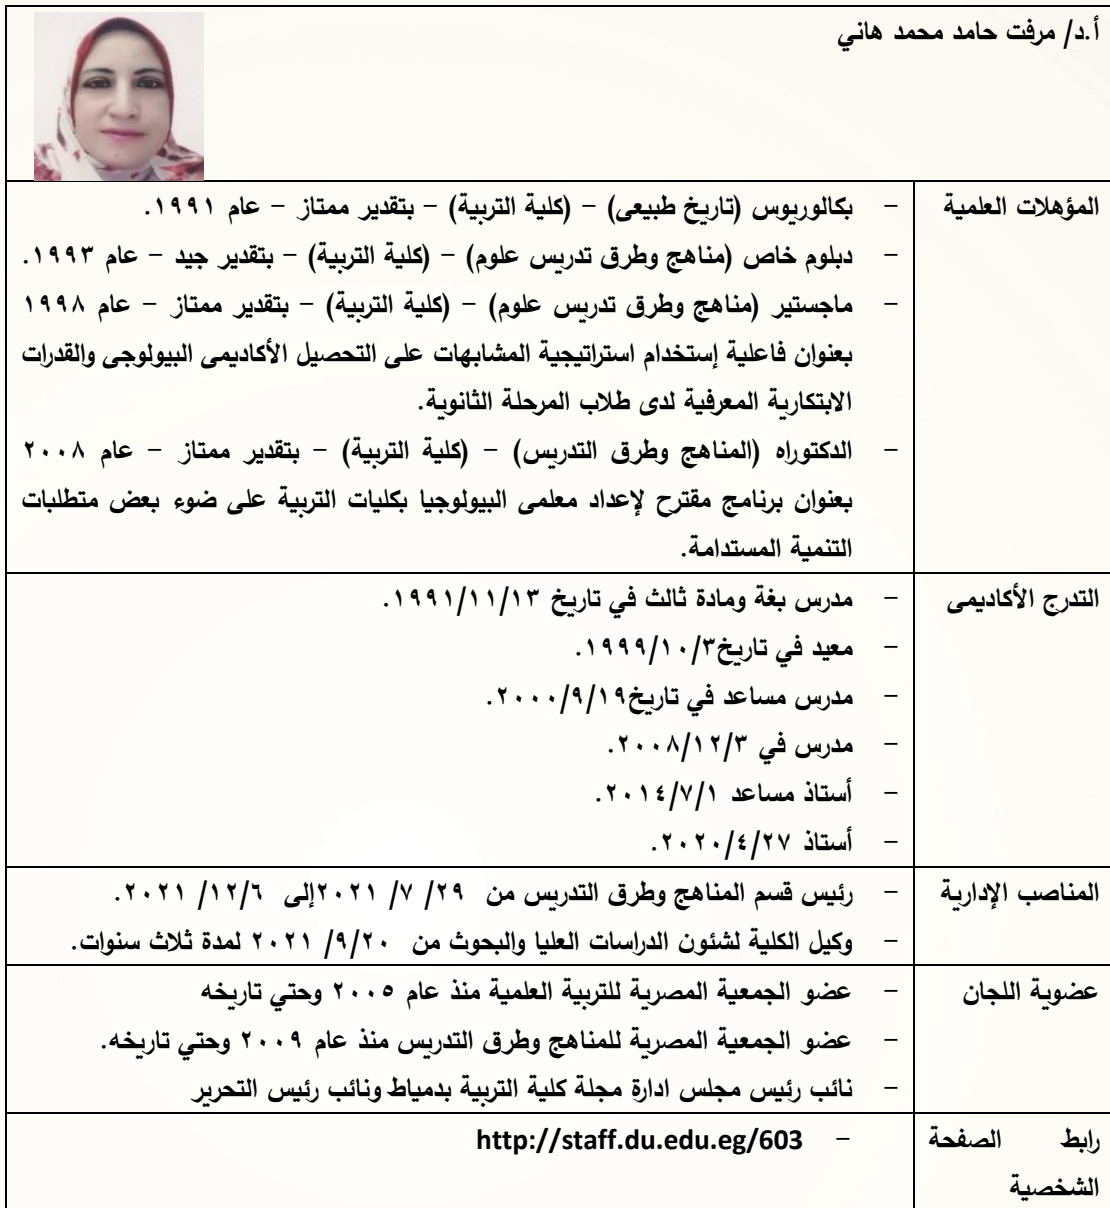 أ.د/ مرفت حامد محمد هاني
المؤهلات العلمية
- بكالوريوس (تاريخ طبيعى) – (كلية التربية) – بتقدير ممتاز – عام ١٩٩١.
- دبلوم خاص (مناهج وطرق تدريس علوم) – (كلية التربية) – بتقدير جيد – عام ١٩٩٣.
- ماجستير (مناهج وطرق تدريس علوم) – (كلية التربية) – بتقدير ممتاز – عام ١٩٩٨
بعنوان فاعلية إستخدام استراتيجية المشابهات على التحصيل الأكاديمى البيولوجى والقدرات
الابتكارية المعرفية لدى طلاب المرحلة الثانوية.
- الدكتوراه (المناهج وطرق التدريس) – (كلية التربية) – بتقدير ممتاز – عام ٢٠٠٨
بعنوان برنامج مقترح لإعداد معلمى البيولوجيا بكليات التربية على ضوء بعض متطلبات
التنمية المستدامة.
التدرج الأكاديمى
- مدرس بغة ومادة ثالث في تاريخ ١٩٩١/١١/١٣.
- معيد في تاريخ١٩٩٩/١٠/٣.
- مدرس مساعد في تاريخ٢٠٠٠/٩/١٩.
- مدرس في ٢٠٠٨/١٢/٣.
- أستاذ مساعد ٢٠١٤/٧/١.
- أستاذ ٢٠٢٠/٤/٢٧.
المناصب الإدارية
- رئيس قسم المناهج وطرق التدريس من ٢٩/ ٧/ ٢٠٢١إلى ١٢/٦/ ٢٠٢١.
- وكيل الكلية لشئون الدراسات العليا والبحوث من ٩/٢٠/ ٢٠٢١ لمدة ثلاث سنوات.
عضوية اللجان
- عضو الجمعية المصرية للتربية العلمية منذ عام ٢٠٠٥ وحتي تاريخه
- عضو الجمعية المصرية للمناهج وطرق التدريس منذ عام ٢٠٠٩ وحتي تاريخه.
- نائب رئيس مجلس ادارة مجلة كلية التربية بدمياط ونائب رئيس التحرير
رابط الصفحة
الشخصية
- http://staff.du.edu.eg/603